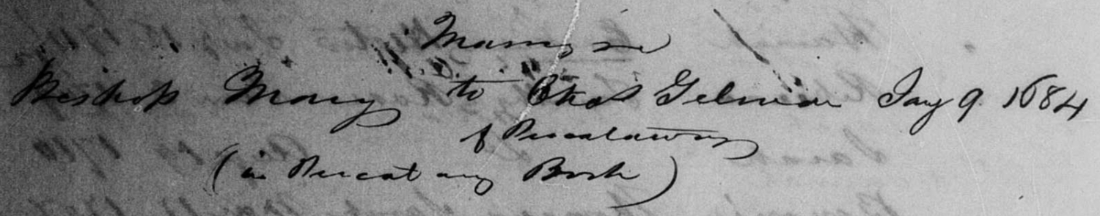 Married
Bishop Mary to Chas Gilman Jay 9 1684
of Piscataway
(in Piscataway Book)